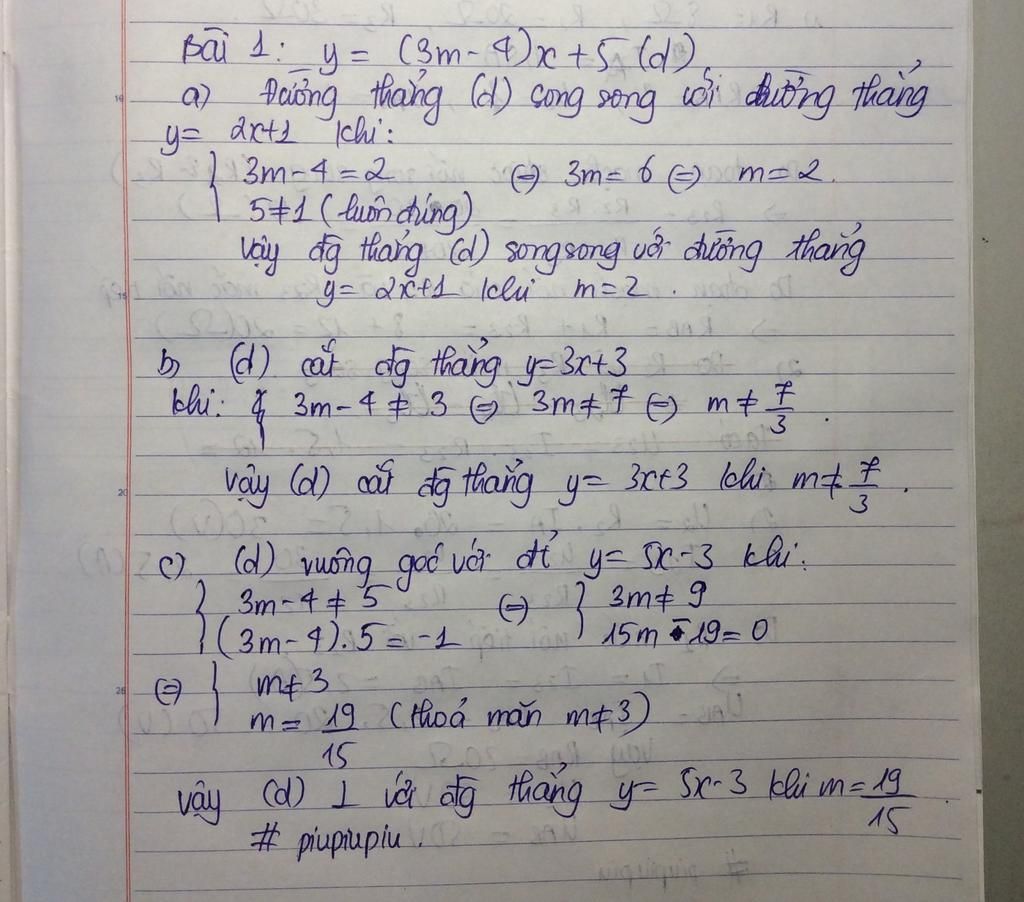 Bài 1: y = (3m-4)x+5 (d)
a) Đường thẳng (d) song song với đường thẳng
y= 2x+1 khi:
3m-4=2 (=) 3m=6 (=) m=2.
5≠1 (luôn đúng)
Vậy đg thẳng (d) song song với đường thẳng
y= 2x+1 khi m=2.
b) (d) cắt đg thẳng y=3x+3
khi: 3m-4≠3 (=) 3m≠7 (=) m≠7/3.
Vậy (d) cắt đg thẳng y= 3x+3 khi m≠7/3.
c) (d) vuông góc với đt y= 5x-3 khi:
{ 3m-4≠5 (=) { 3m≠9
(3m-4).5=-1 15m-19=0
(=) { m≠3
m= 19/15 (thoả mãn m≠3)
Vậy (d) ⊥ với đg thẳng y= 5x-3 khi m=19/15
# piupiupiu.